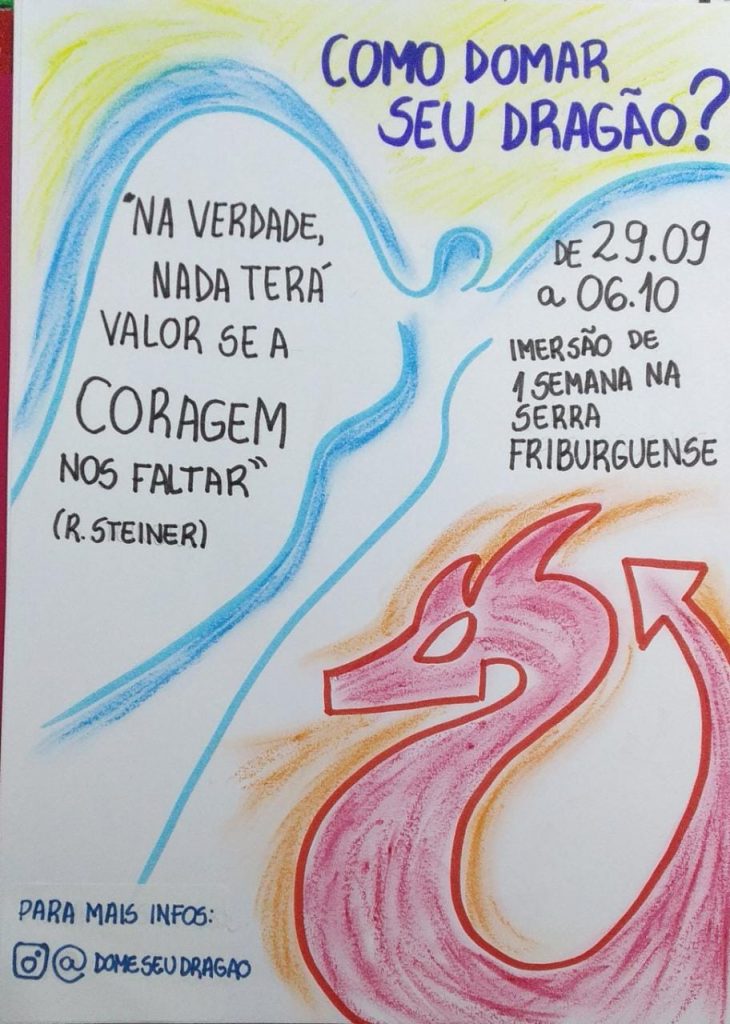 COMO DOMAR
SEU DRAGÃO?
"NA VERDADE,
NADA TERÁ
VALOR SE A
CORAGEM
NOS FALTAR"
(R. STEINER)
DE 29.09
a 06.10
IMERSÃO DE
1 SEMANA NA
SERRA
FRIBURGUENSE
PARA MAIS INFOS:
@DOMESEUDRAGAO